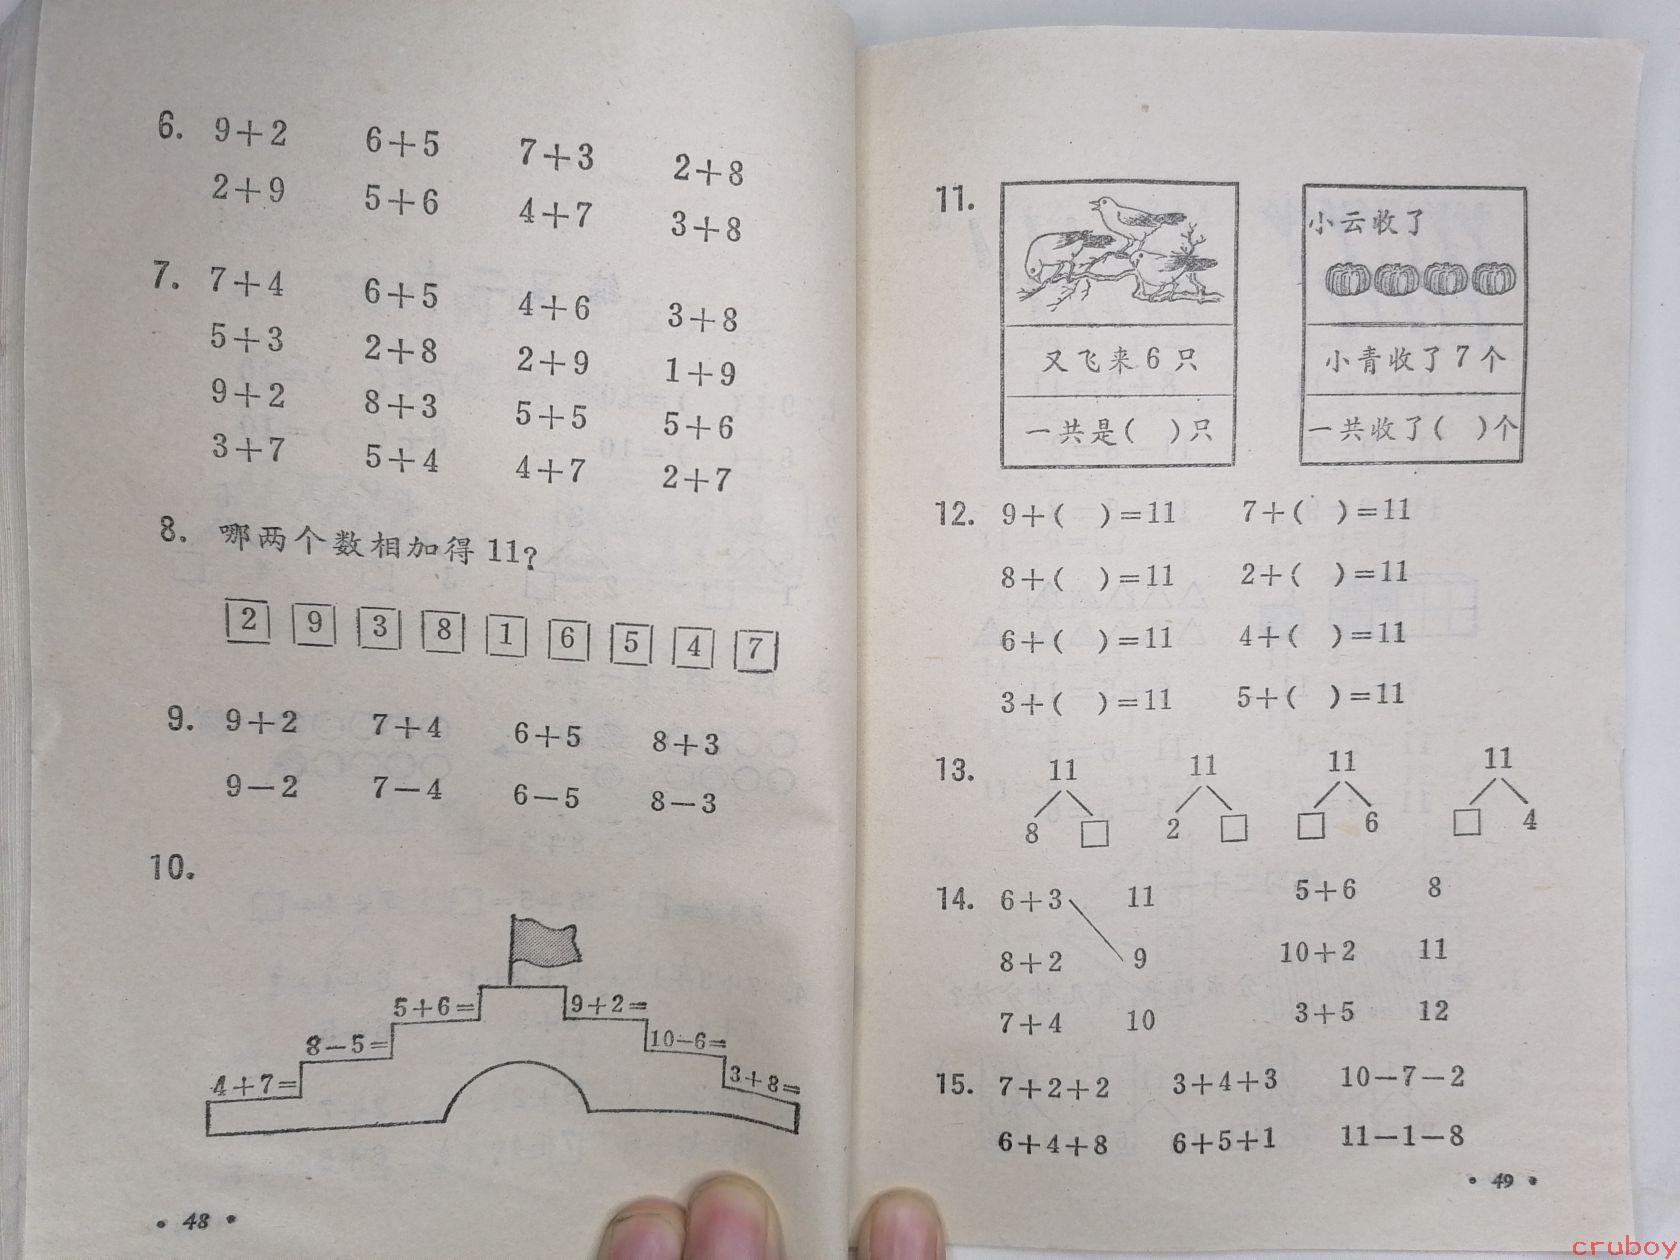 6. 9+2 6+5 7+3 2+8
2+9 5+6 4+7 3+8
7. 7+4 6+5 4+6 3+8
5+3 2+8 2+9 1+9
9+2 8+3 5+5 5+6
3+7 5+4 4+7 2+7
8. 哪两个数相加得11?
2 9 3 8 1 6 5 4 7
9. 9+2 7+4 6+5 8+3
9－2 7－4 6－5 8－3
10.
5+6= 9+2=
8－5= 10－6=
4+7= 3+8=
• 48 •
11. 小云收了
又飞来6只 小青收了7个
一共是( )只 一共收了( )个
12. 9+( )=11 7+( )=11
8+( )=11 2+( )=11
6+( )=11 4+( )=11
3+( )=11 5+( )=11
13. 11 11 11 11
8 □ 2 □ □ 6 □ 4
14. 6+3 11 5+6 8
8+2 9 10+2 11
7+4 10 3+5 12
15. 7+2+2 3+4+3 10－7－2
6+4+8 6+5+1 11－1－8
• 49 •
cruboy